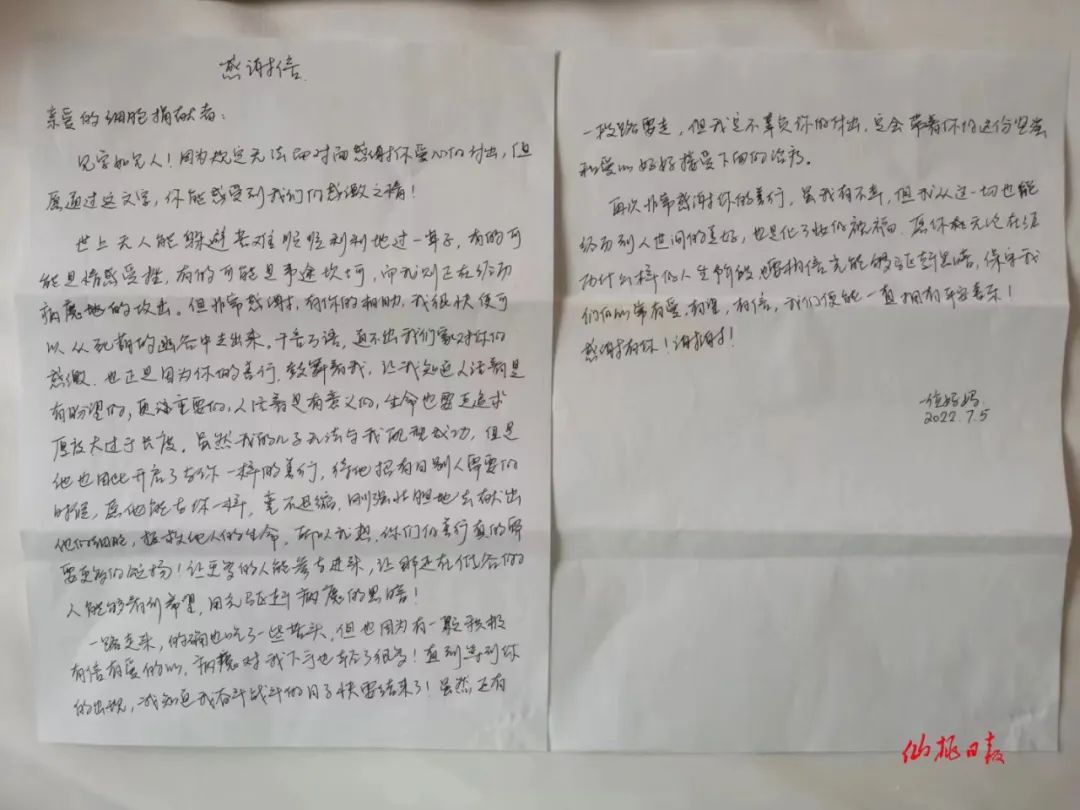 感谢信
亲爱的细胞捐献者：
见字如见人！因为规定无法面对面感谢你爱心的付出，但
愿通过这文字，你能感受到我们的感激之情！
世上无人能躲避苦难顺顺利利地过一辈子，有的可
能是情感受挫，有的可能是事途坎坷，而我则正在经历
病魔地的攻击。但非常感谢，有你的相助，我很快便可
以从死荫的幽谷中走出来。千言万语，道不出我们家对你的
感激。也正是因为你的善行，鼓舞着我，让我知道人活着是
有盼望的，更为重要的，人活着是有意义的，生命也要更追求
厚度大过于长度。虽然我的儿子无法与我配型成功，但是
他也因此开启了与你一样的善行，待他招有日别人需要的
时候，愿他能与你一样，毫不退缩，刚强壮胆地去献出
他的细胞，拯救他人的生命。所以我想，你们的善行真的需
要更多的继扬！让更多的人能参与进来，让那还在低谷的
人能够看到希望，用光驱走病魔的黑暗！
一路走来，的确也吃了一些苦头，但也因为有一颗积极
有信有爱的心，病魔对我下手也轻了很多！直到等到你
的出现，我知道我奋斗战斗的日子快要结束了！虽然还有
一段路要走，但我定不辜负你的付出，定会带着你的这份坚强
和爱心好好接受下面的治疗。
再次非常感谢你的善行，虽我有不幸，但我从这一切也能
经历到人世间的美好，也是化了妆的祝福。愿你和无论在经
历什么样的人生阶段，也要相信光能够驱赶黑暗，保守我
们的心常有爱，有望，有信，我们便能一直拥有平安喜乐！
感谢有你！谢谢！
一位妈妈
2022.7.5
仙桃日报